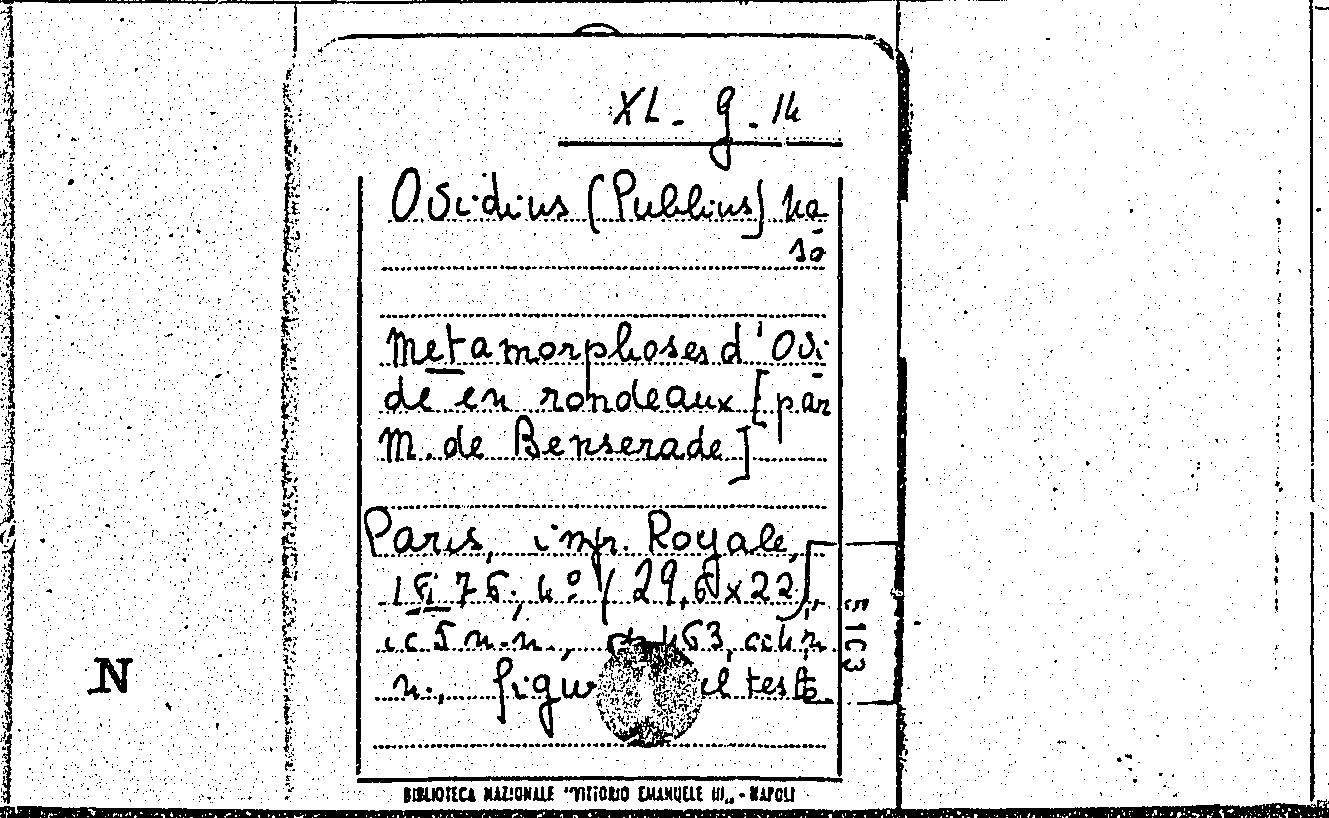 XL. g. 14
Ovidius (Publius) na
so
Metamorphoses d'Ovi
de en rondeaux [par
M. de Benserade]
Paris, imp. Royale,
1676, 4° (29,6x22),
cc 5 n.n., 463, cc 4 n.
n., figu il testo
N
BIBLIOTECA NAZIONALE "VITTORIO EMANUELE III„ - NAPOLI